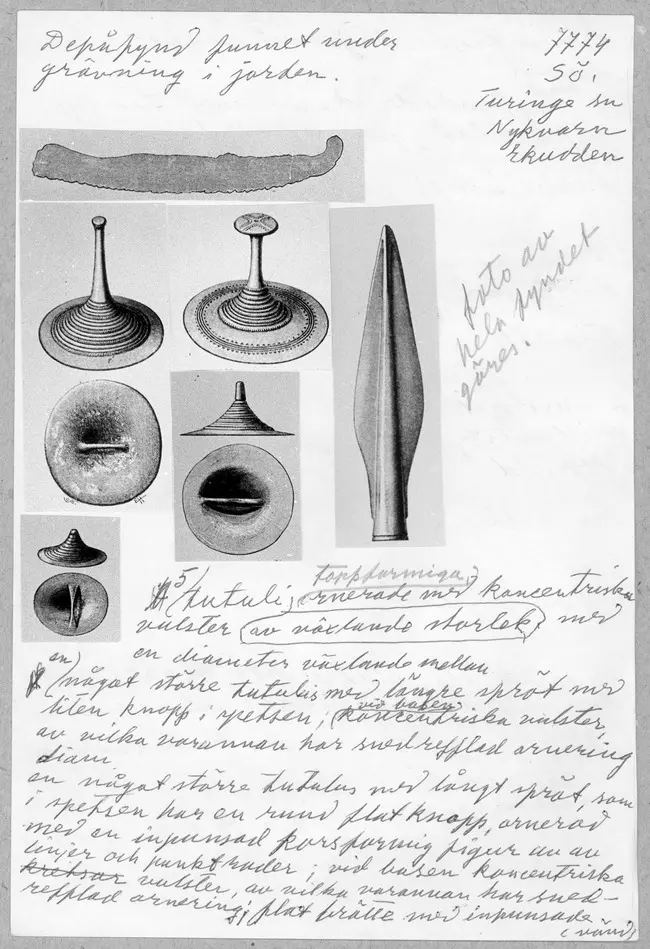 Depåfynd funnet under
grävning i jorden.
7774
Sö.
Turinge sn
Nykvarn
Ekudden
foto av
hela fyndet
göres.
5) tutuli, toppformiga, ornerade med koncentriska
valster (av växlande storlek) med
en diameter växlande mellan
en) något större tutulus med längre spröt med
liten knopp i spetsen; vid basen koncentriska valster,
av vilka varannan har snedrefflad ornering
diam
en något större tutulus med långt spröt, som
i spetsen har en rund flat knopp, ornerad
med en inpunsad korsformig figur av av
linjer och punktrader; vid basen koncentriska
kretsar valster, av vilka varannan har sned-
refflad ornering; flat brätte med inpunsade
(vänd)